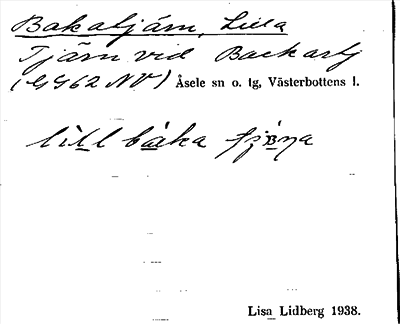 Bakatjärn, Lilla
Tjärn vid Backasbj
(GG62 NV) Åsele sn o. tg, Västerbottens l.
lill båka
Lisa Lidberg 1938.